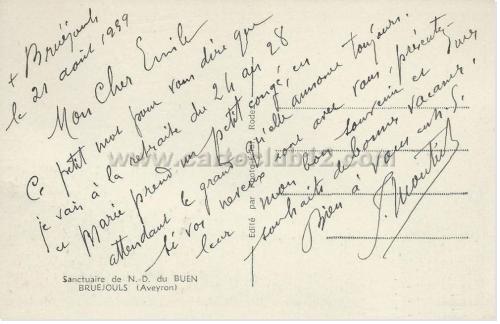 + Bruéjouls
le 21 août 1959
Mon Cher Emile
Ce petit mot pour vous dire que
je vais à la retraite du 24 au 28
et Marie prend un petit congé, en
attendant le grand qu'elle annonce toujours.
Si vos neveux sont avec vous, présentez
leur mon bon souvenir et mes
souhaits de bonnes vacances,
Bien à vous en N.S.
www.cartoclub12.com
Sanctuaire de N.-D. du BUEN
BRUÉJOULS (Aveyron)
Edité par Rode